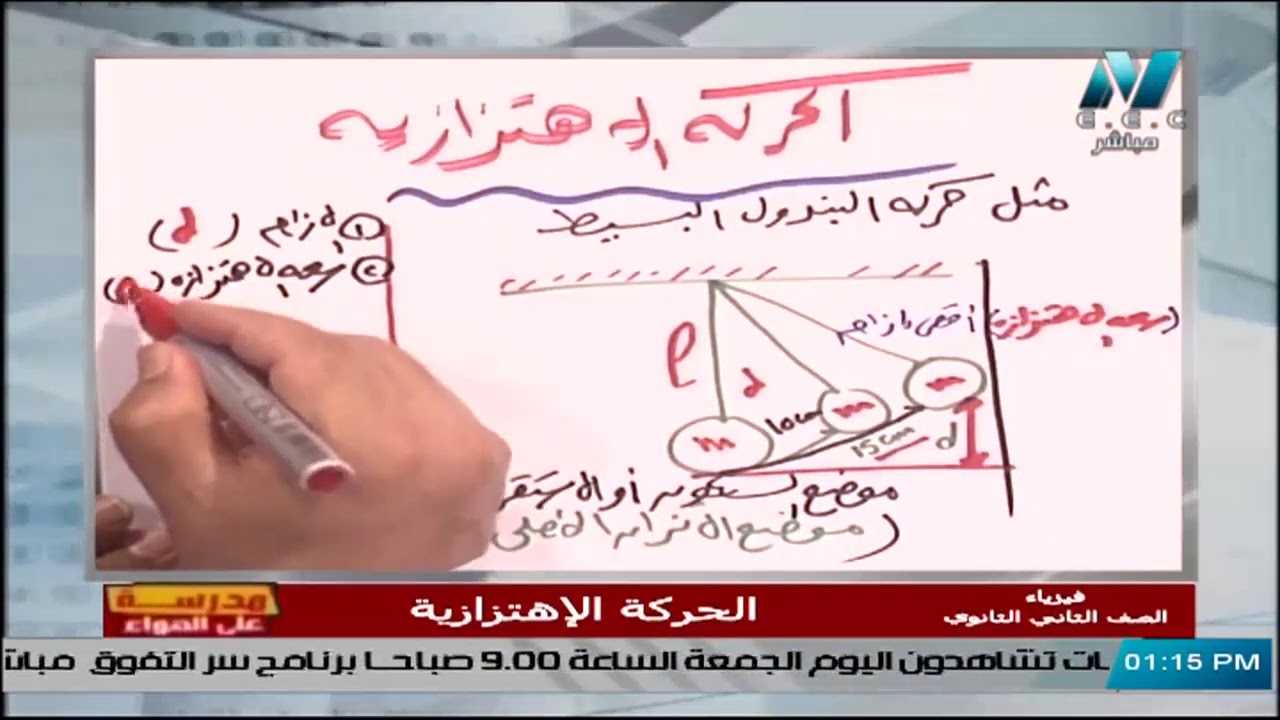 E.E.C
مباشر
الحركة الاهتزازية
مثل حركة البندول البسيط
① الازاحة (d)
② سعة الاهتزازة (
أقصى ازاحة (سعة الاهتزازة)
l
d
10cm
15cm
d
m
m
m
موضع السكون أو الاستقر
(موضع الاتزان الأصلى
فيزياء
الصف الثاني الثانوي
الحركة الإهتزازية
مدرسة
على الهواء
ـات تشاهدون اليوم الجمعة الساعة 9.00 صباحا برنامج سر التفوق مباش
01:15 PM